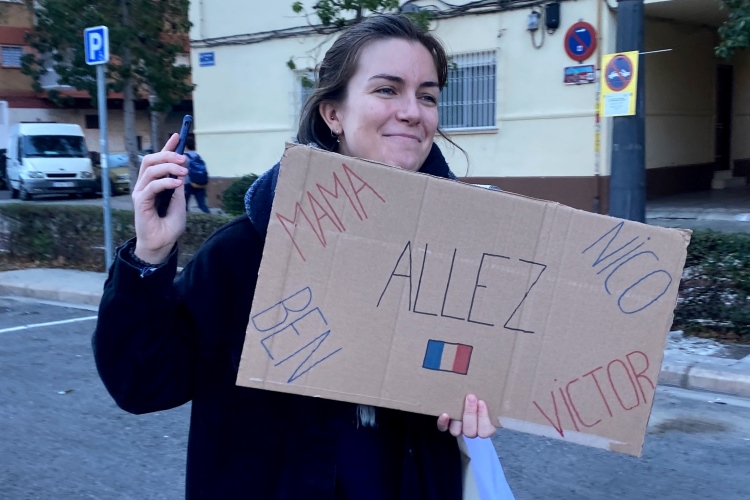 P
MAMA
ALLEZ
NICO
BEN
VICTOR